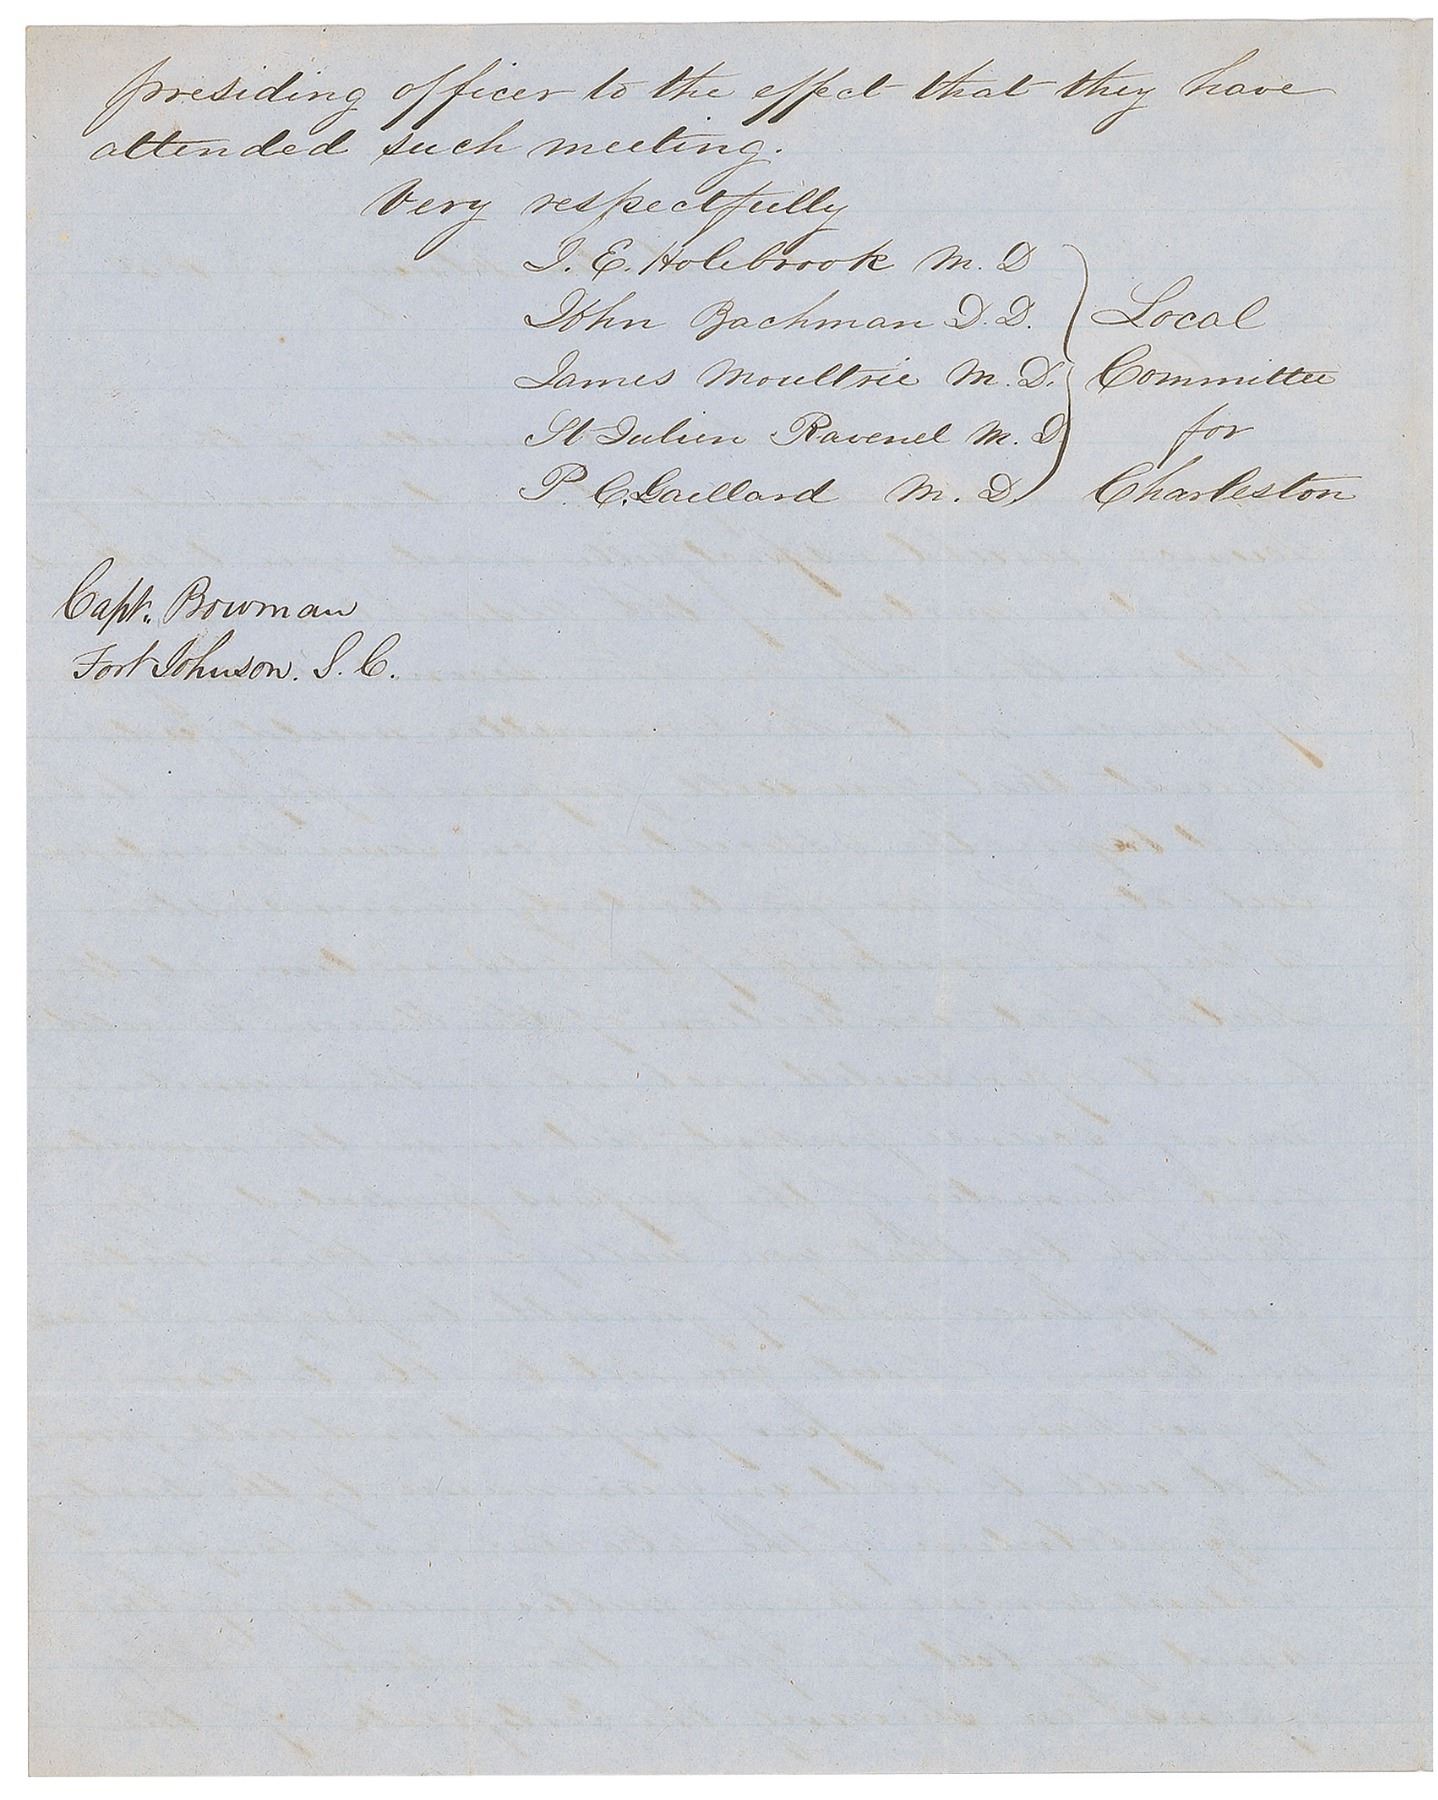 presiding officer to the effect that they have
attended such meeting.
Very respectfully
J. E. Holebrook M. D
John Bachman D. D.
James Moultrie M. D.
St Julien Ravenel M. D
P. C. Gaillard M. D.
Local
Committee
for
Charleston
Capt. Bowman
Fort Johnson. S. C.